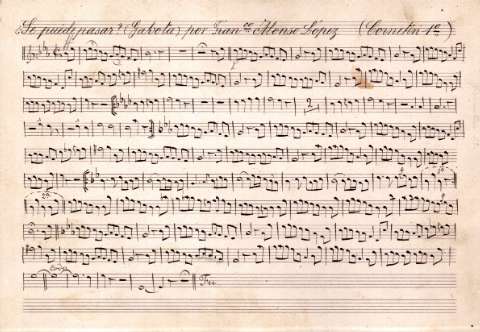 ¿Se puede pasar? (Gabota) por Fran.co Alonso Lopez (Cornetin 1º)
2
Fin